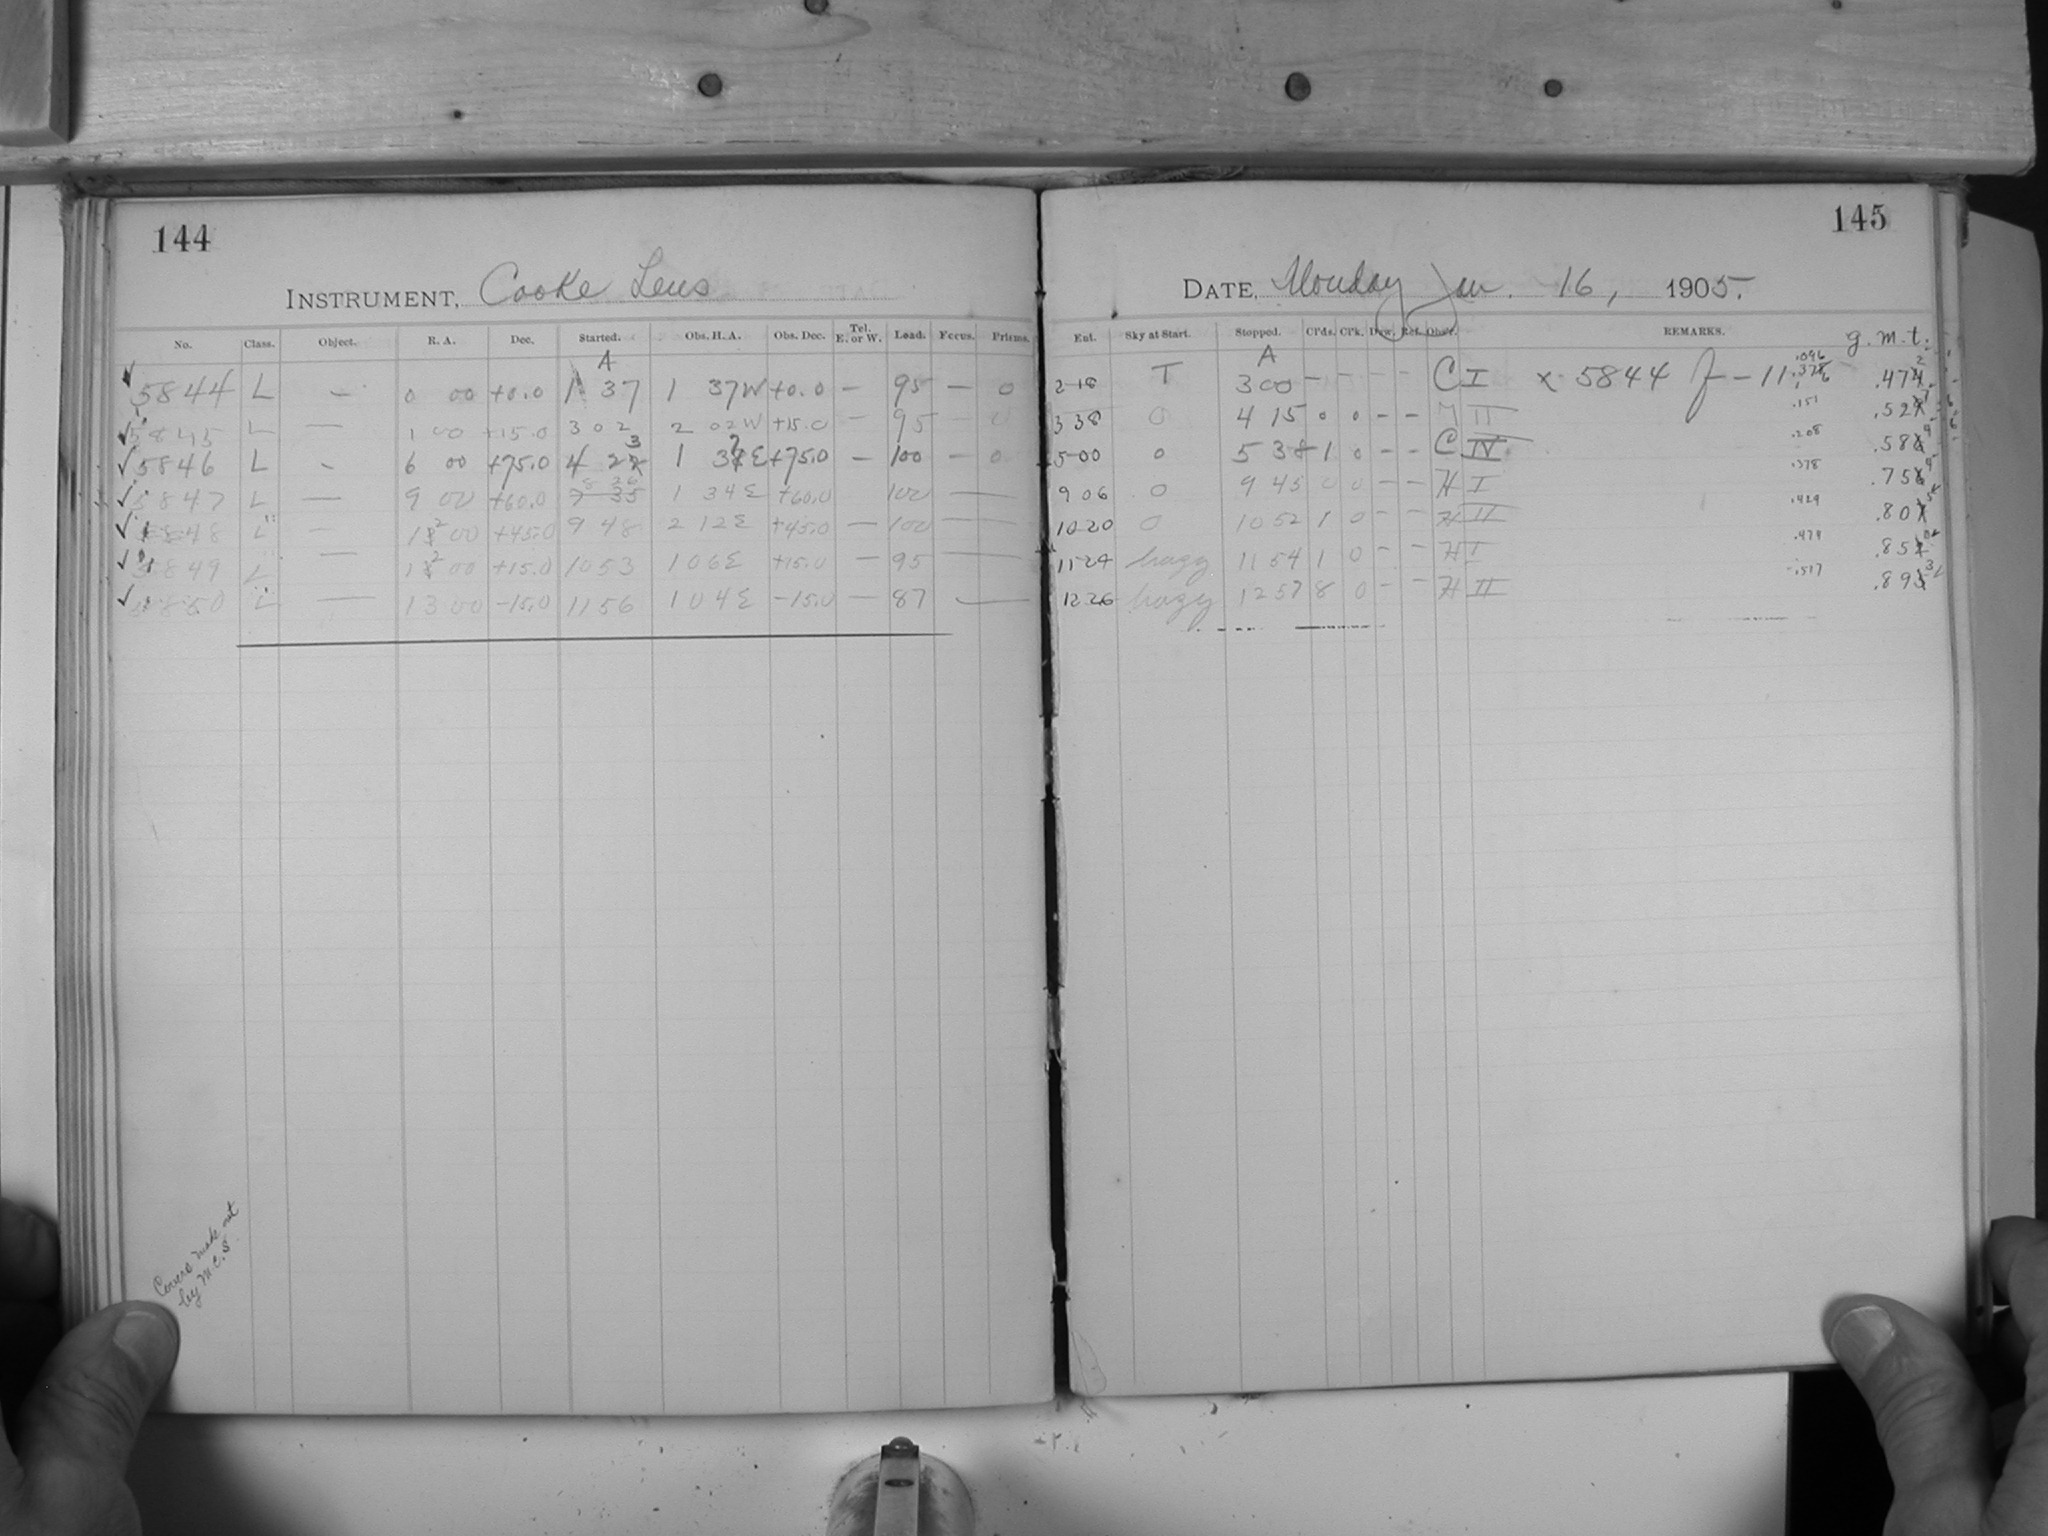 144
INSTRUMENT, Cooke Lens
No. Class. Object. R. A. Dec. Started. Obs. H. A. Obs. Dec. Tel. E. or W. Load. Focus. Prisms.
A
5844 L — 0 00 +0.0 1 37 1 37W +0.0 — 95 — 0
5845 L — 1 00 +15.0 3 02 2 02W +15.0 — 95 0
5846 L - 6 00 +75.0 4 23 1 37E +75.0 — 100 — 0
5847 L — 9 00 +60.0 8 26 1 34E +60.0 100 —
5848 L — 12 00 +45.0 9 48 2 12E +45.0 — 100 —
5849 L — 12 00 +15.0 10 53 1 06E +15.0 — 95 —
5850 L — 13 00 -15.0 11 56 1 04E -15.0 — 87 —
Covers made out
by M.C.S.
145
DATE, Monday Jan. 16, 1905.
Ent. Sky at Start. Stopped. Cl'ds. C'k. Dew. Ref. Obs'r. REMARKS. g.m.t.
A
2 18 T 3 00 - - - - C I x 5844 J - 11 .096 .472
3 38 0 4 15 0 0 - - II .151 .527
5 00 0 5 38 1 0 - - C IV .208 .584
9 06 0 9 45 0 0 - - H I .378 .754
10 20 0 10 52 1 0 - - H II .429 .805
11 24 hazy 11 54 1 0 - - H I .474
12 26 hazy 12 57 8 0 - - H II .517 .893